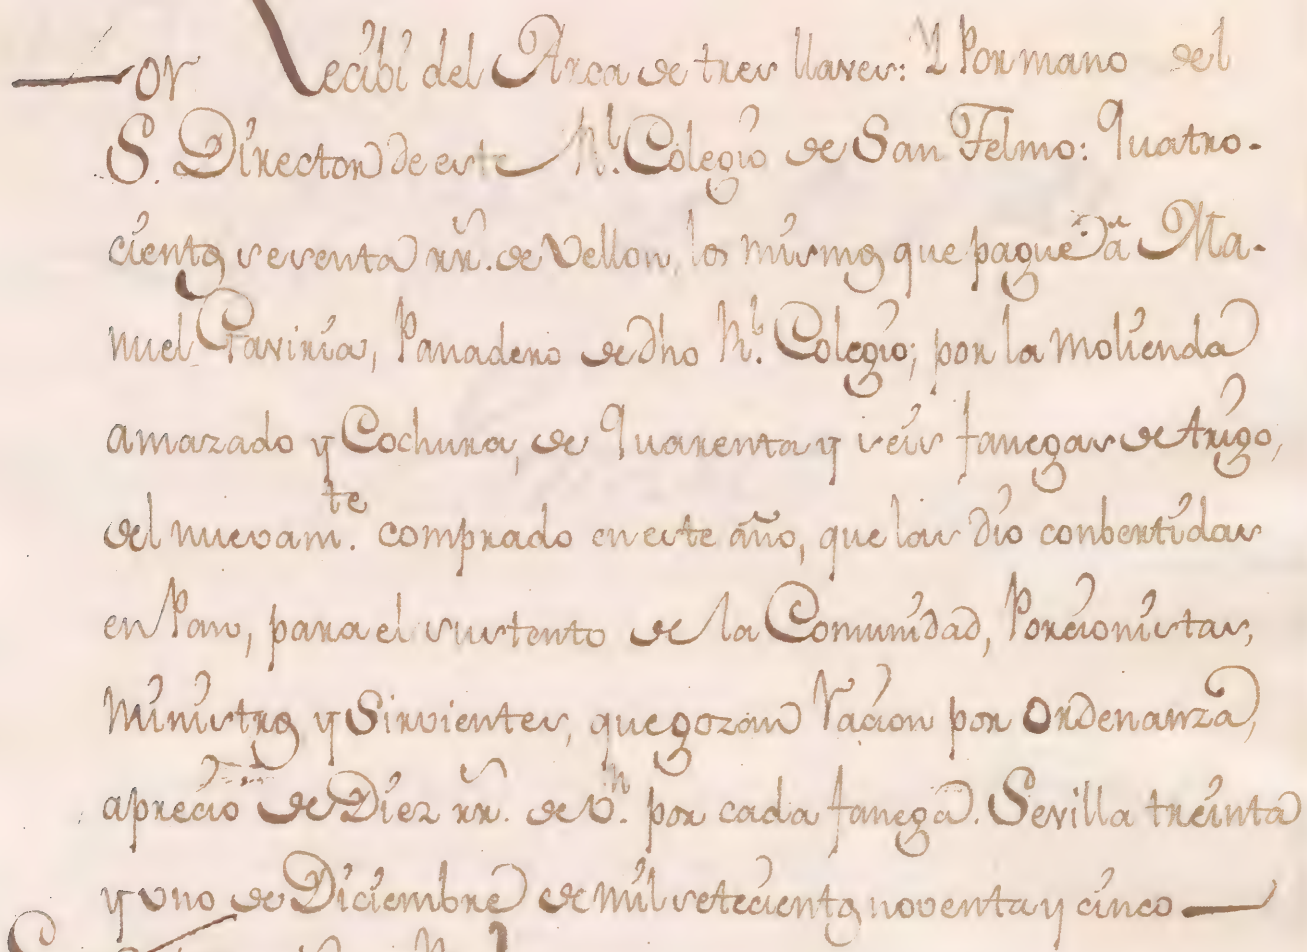 or Recibi del Arca de tres llaves: Y Por mano del
S. Director de este Rl. Colegio de San Telmo: Quatro-
cientos sesenta rr. de Vellon, los mismos que pagué â Ma-
nuel Gaviria, Panadero de dho Rl. Colegio; por la molienda
amazado y Cochura, de Quarenta y seis fanegas de trigo,
del nuevamte. comprado en este año, que las dio conbertidas
en Pan, para el sustento de la Comunidad, Porcionistas,
Ministros y Sirvientes, que gozan Racion por Ordenanza,
a precio de Diez rr. de Vn. por cada fanega. Sevilla treinta
y uno de Diciembre de mil setecientos noventa y cinco